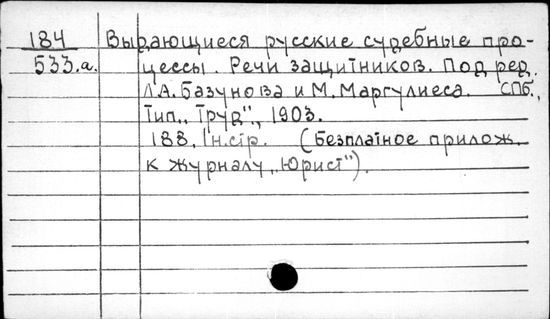 184 Выдающиеся русские судебные про-
533.а. цессы. Речи защитников. Под ред.
Л.А. Базунова и М. Маргулиеса. СПб.,
тип. „Труд", 1903.
188, 1н.стр. (Безплатное прилож.
к журналу „Юрист").